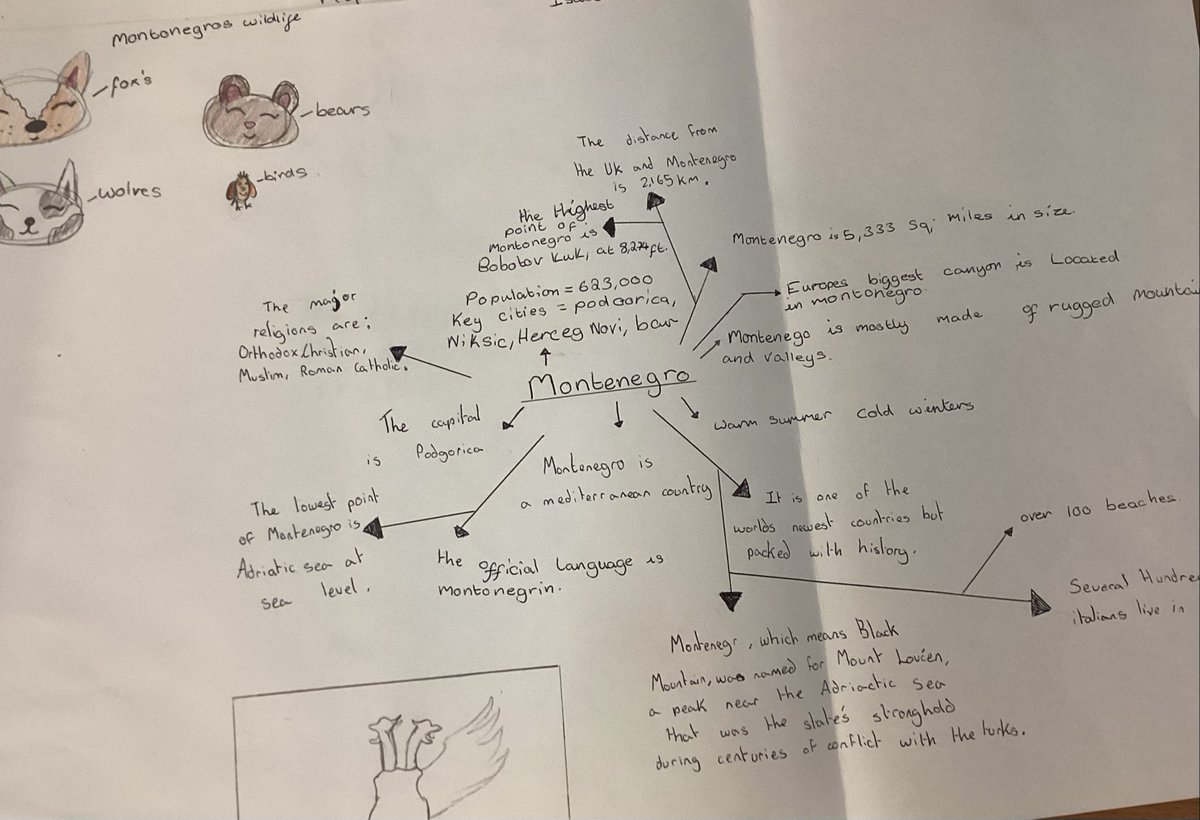 Montonegros wildlife
fox's
bears
wolves
birds
The distance from
the UK and Montenegro
is 2,165 km.
the Highest
point of
Montonegro is
Bobotov Kuk, at 8,274ft.
Montenegro is 5,333 Sq; miles in size.
Europes biggest canyon is Located
in montonegro.
Montenego is mostly made of rugged mountai
and valleys.
Population = 623,000
Key cities = podoorica,
Niksic, Herceg Novi, bar
The major
religions are;
Orthodox Christian,
Muslim, Roman Catholic.
Montenegro
The capital
is Podgorica
warm summer cold winters
Montenegro is
a mediterranean country
The lowest point
of Montenegro is
Adriatic sea at
sea level.
the official Language is
montonegrin.
It is one of the
worlds newest countries but
packed with history.
over 100 beaches.
Several Hundre
italians live in
Montenegr, which means Black
Mountain, was named for Mount Lovćen,
a peak near the Adriactic Sea
that was the state's stronghold
during centuries of conflict with the turks.